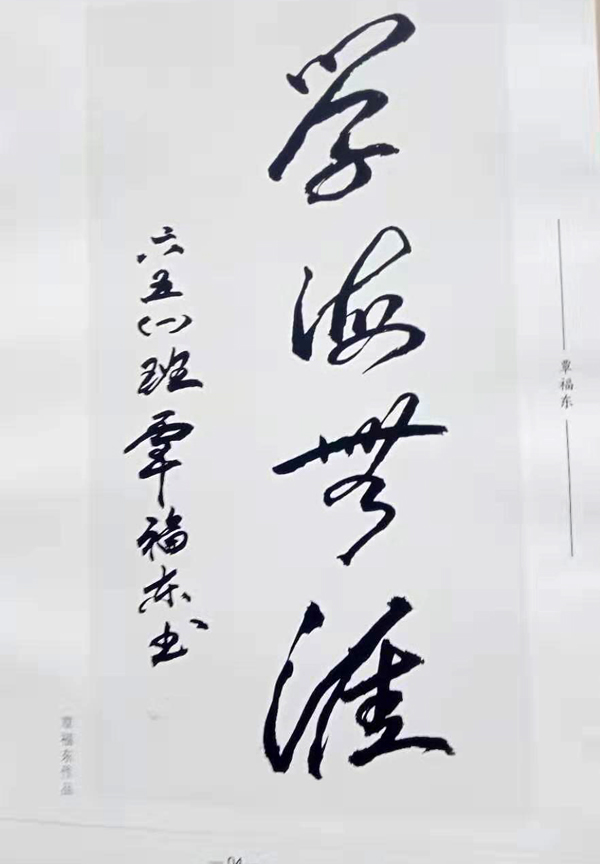 学海無涯
六五(一)班覃福东书
覃福东
覃福东作品
04